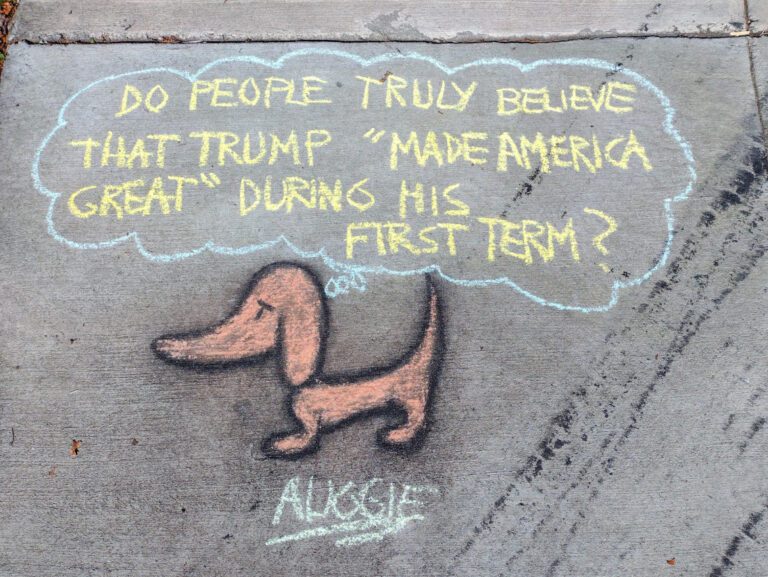 DO PEOPLE TRULY BELIEVE
THAT TRUMP "MADE AMERICA
GREAT" DURING HIS
FIRST TERM?
AUGGIE